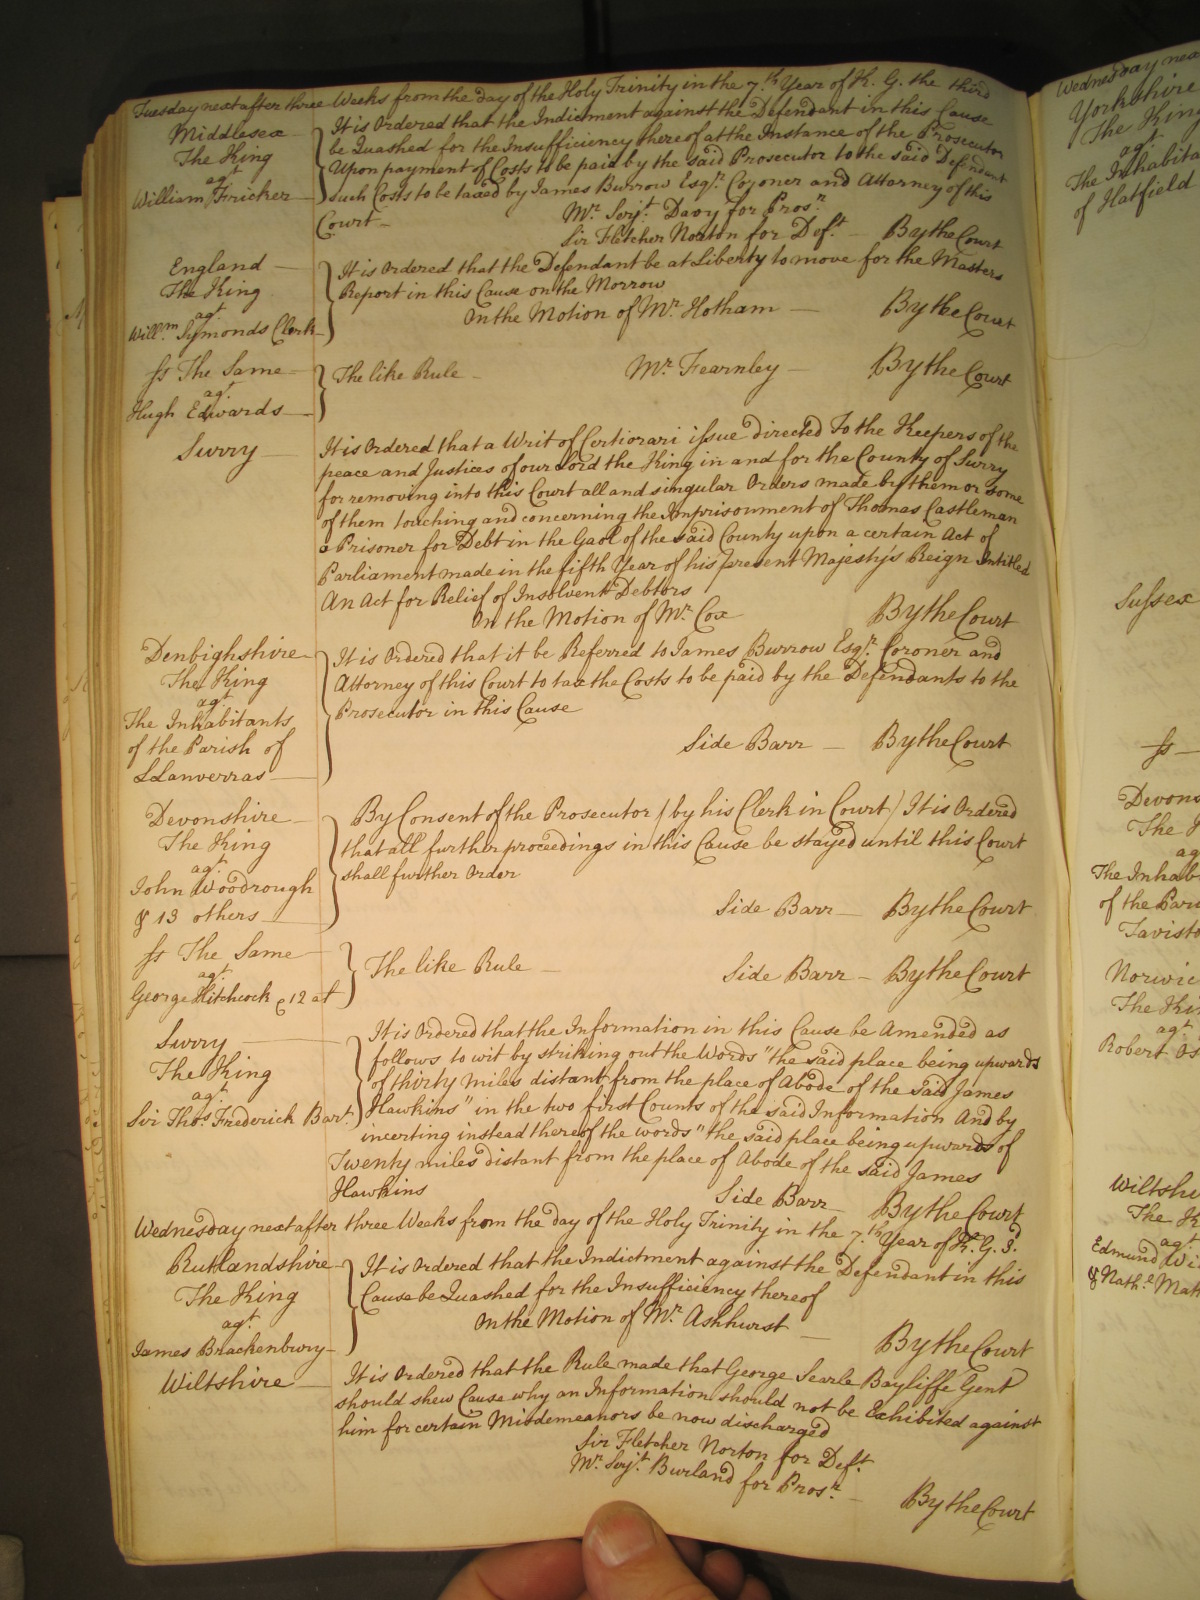 Tuesday next after three Weeks from the day of the Holy Trinity in the 7.th Year of K. G. the third
Middlesex
The King
agt
William Fricker
It is Ordered that the Indictment against the Defendant in this Cause
be Quashed for the Insufficiency thereof at the Instance of the Prosecutor
Upon payment of Costs to be paid by the said Prosecutor to the said Defendant
such Costs to be taxed by James Burrow Esqr. Coroner and Attorney of this
Court
Mr. Serjt. Davy for Prosr.
Sir Fletcher Norton for Deft. By the Court
England
The King
agt
Willm. Symonds Clerk
It is Ordered that the Defendant be at Liberty to move for the Masters
Report in this Cause on the Morrow
On the Motion of Mr. Hotham By the Court
ss The Same
agt
Hugh Edwards
The like Rule Mr. Fearnley By the Court
Surry
It is Ordered that a Writ of Certiorari issue directed To the Keepers of the
peace and Justices of our Lord the King in and for the County of Surry
for removing into this Court all and singular Orders made by them or some
of them touching and concerning the Imprisonment of Thomas Castleman
a Prisoner for Debt in the Gaol of the said County upon a certain Act of
Parliament made in the fifth Year of his present Majesty's Reign Intitled
An Act for Relief of Insolvent Debtors
On the Motion of Mr. Cox By the Court
Denbighshire
The King
agt
The Inhabitants
of the Parish of
LLanverras
It is Ordered that it be Referred to James Burrow Esqr. Coroner and
Attorney of this Court to tax the Costs to be paid by the Defendants to the
Prosecutor in this Cause
Side Barr By the Court
Devonshire
The King
agt
John Woodrough
& 13 others
By Consent of the Prosecutor (by his Clerk in Court) It is Ordered
that all further proceedings in this Cause be stayed until this Court
shall further Order
Side Barr By the Court
ss The Same
agt
George Hitchcock & 12 at
The like Rule Side Barr By the Court
Surry
The King
agt
Sir Thos. Frederick Bart.
It is Ordered that the Information in this Cause be Amended as
follows to wit by striking out the Words "the said place being upwards
of thirty Miles distant from the place of Abode of the said James
Hawkins" in the two first Counts of the said Information And by
incerting instead thereof the words "the said place being upwards of
Twenty miles distant from the place of Abode of the said James
Hawkins Side Barr By the Court
Wednesday next after three Weeks from the day of the Holy Trinity in the 7.th Year of K. G. 3d.
Rutlandshire
The King
agt
James Brackenbury
It is Ordered that the Indictment against the Defendant in this
Cause be Quashed for the Insufficiency thereof
On the Motion of Mr. Ashhurst By the Court
Wiltshire
It is Ordered that the Rule made that George Searle Bayliffe Gent
should shew Cause why an Information should not be Exhibited against
him for certain Misdemeanors be now discharged
Sir Fletcher Norton for Deft.
Mr. Serjt. Burland for Prosr.
By the Court
Wednesday nex
Yorkshire
The King
agt
The Inhabita
of Hatfield
Sussex
ss
Devons
The K
ag
The Inhab
of the Pari
Tavisto
Norwic
The Kin
agt
Robert Os
Wiltshi
The K
agt
Edmund Wil
& Nath.l Math